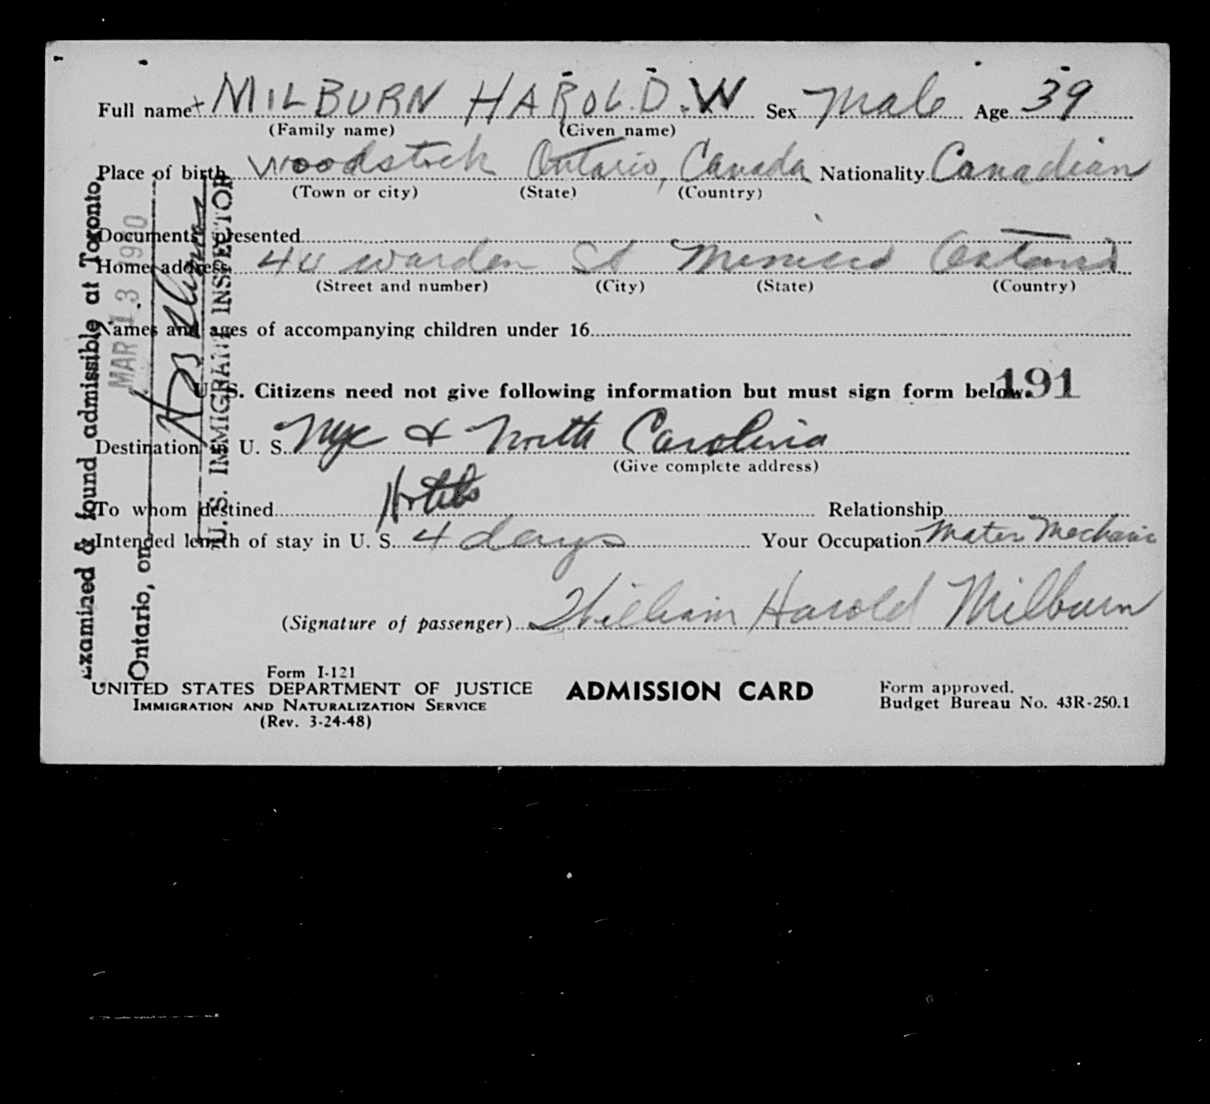 Full name + MILBURN HAROLD. W Sex Male Age 39
(Family name) (Given name)
Place of birth Woodstock Ontario, Canada Nationality Canadian
(Town or city) (State) (Country)
Documents presented
Home address 40 Warden St Mimico Ontario
(Street and number) (City) (State) (Country)
Names and ages of accompanying children under 16
U. S. Citizens need not give following information but must sign form below. 191
Destination in U. S. Nyc & North Carolina
(Give complete address)
To whom destined Hotels Relationship
Intended length of stay in U. S. 4 days Your Occupation Moter Mechanic
(Signature of passenger) William Harold Milburn
Form I-121
UNITED STATES DEPARTMENT OF JUSTICE ADMISSION CARD Form approved.
IMMIGRATION AND NATURALIZATION SERVICE Budget Bureau No. 43R-250.1
(Rev. 3-24-48)
Examined & found admissible at Toronto
Ontario, on MAR 13
U. S. IMMIGRANT INSPECTOR